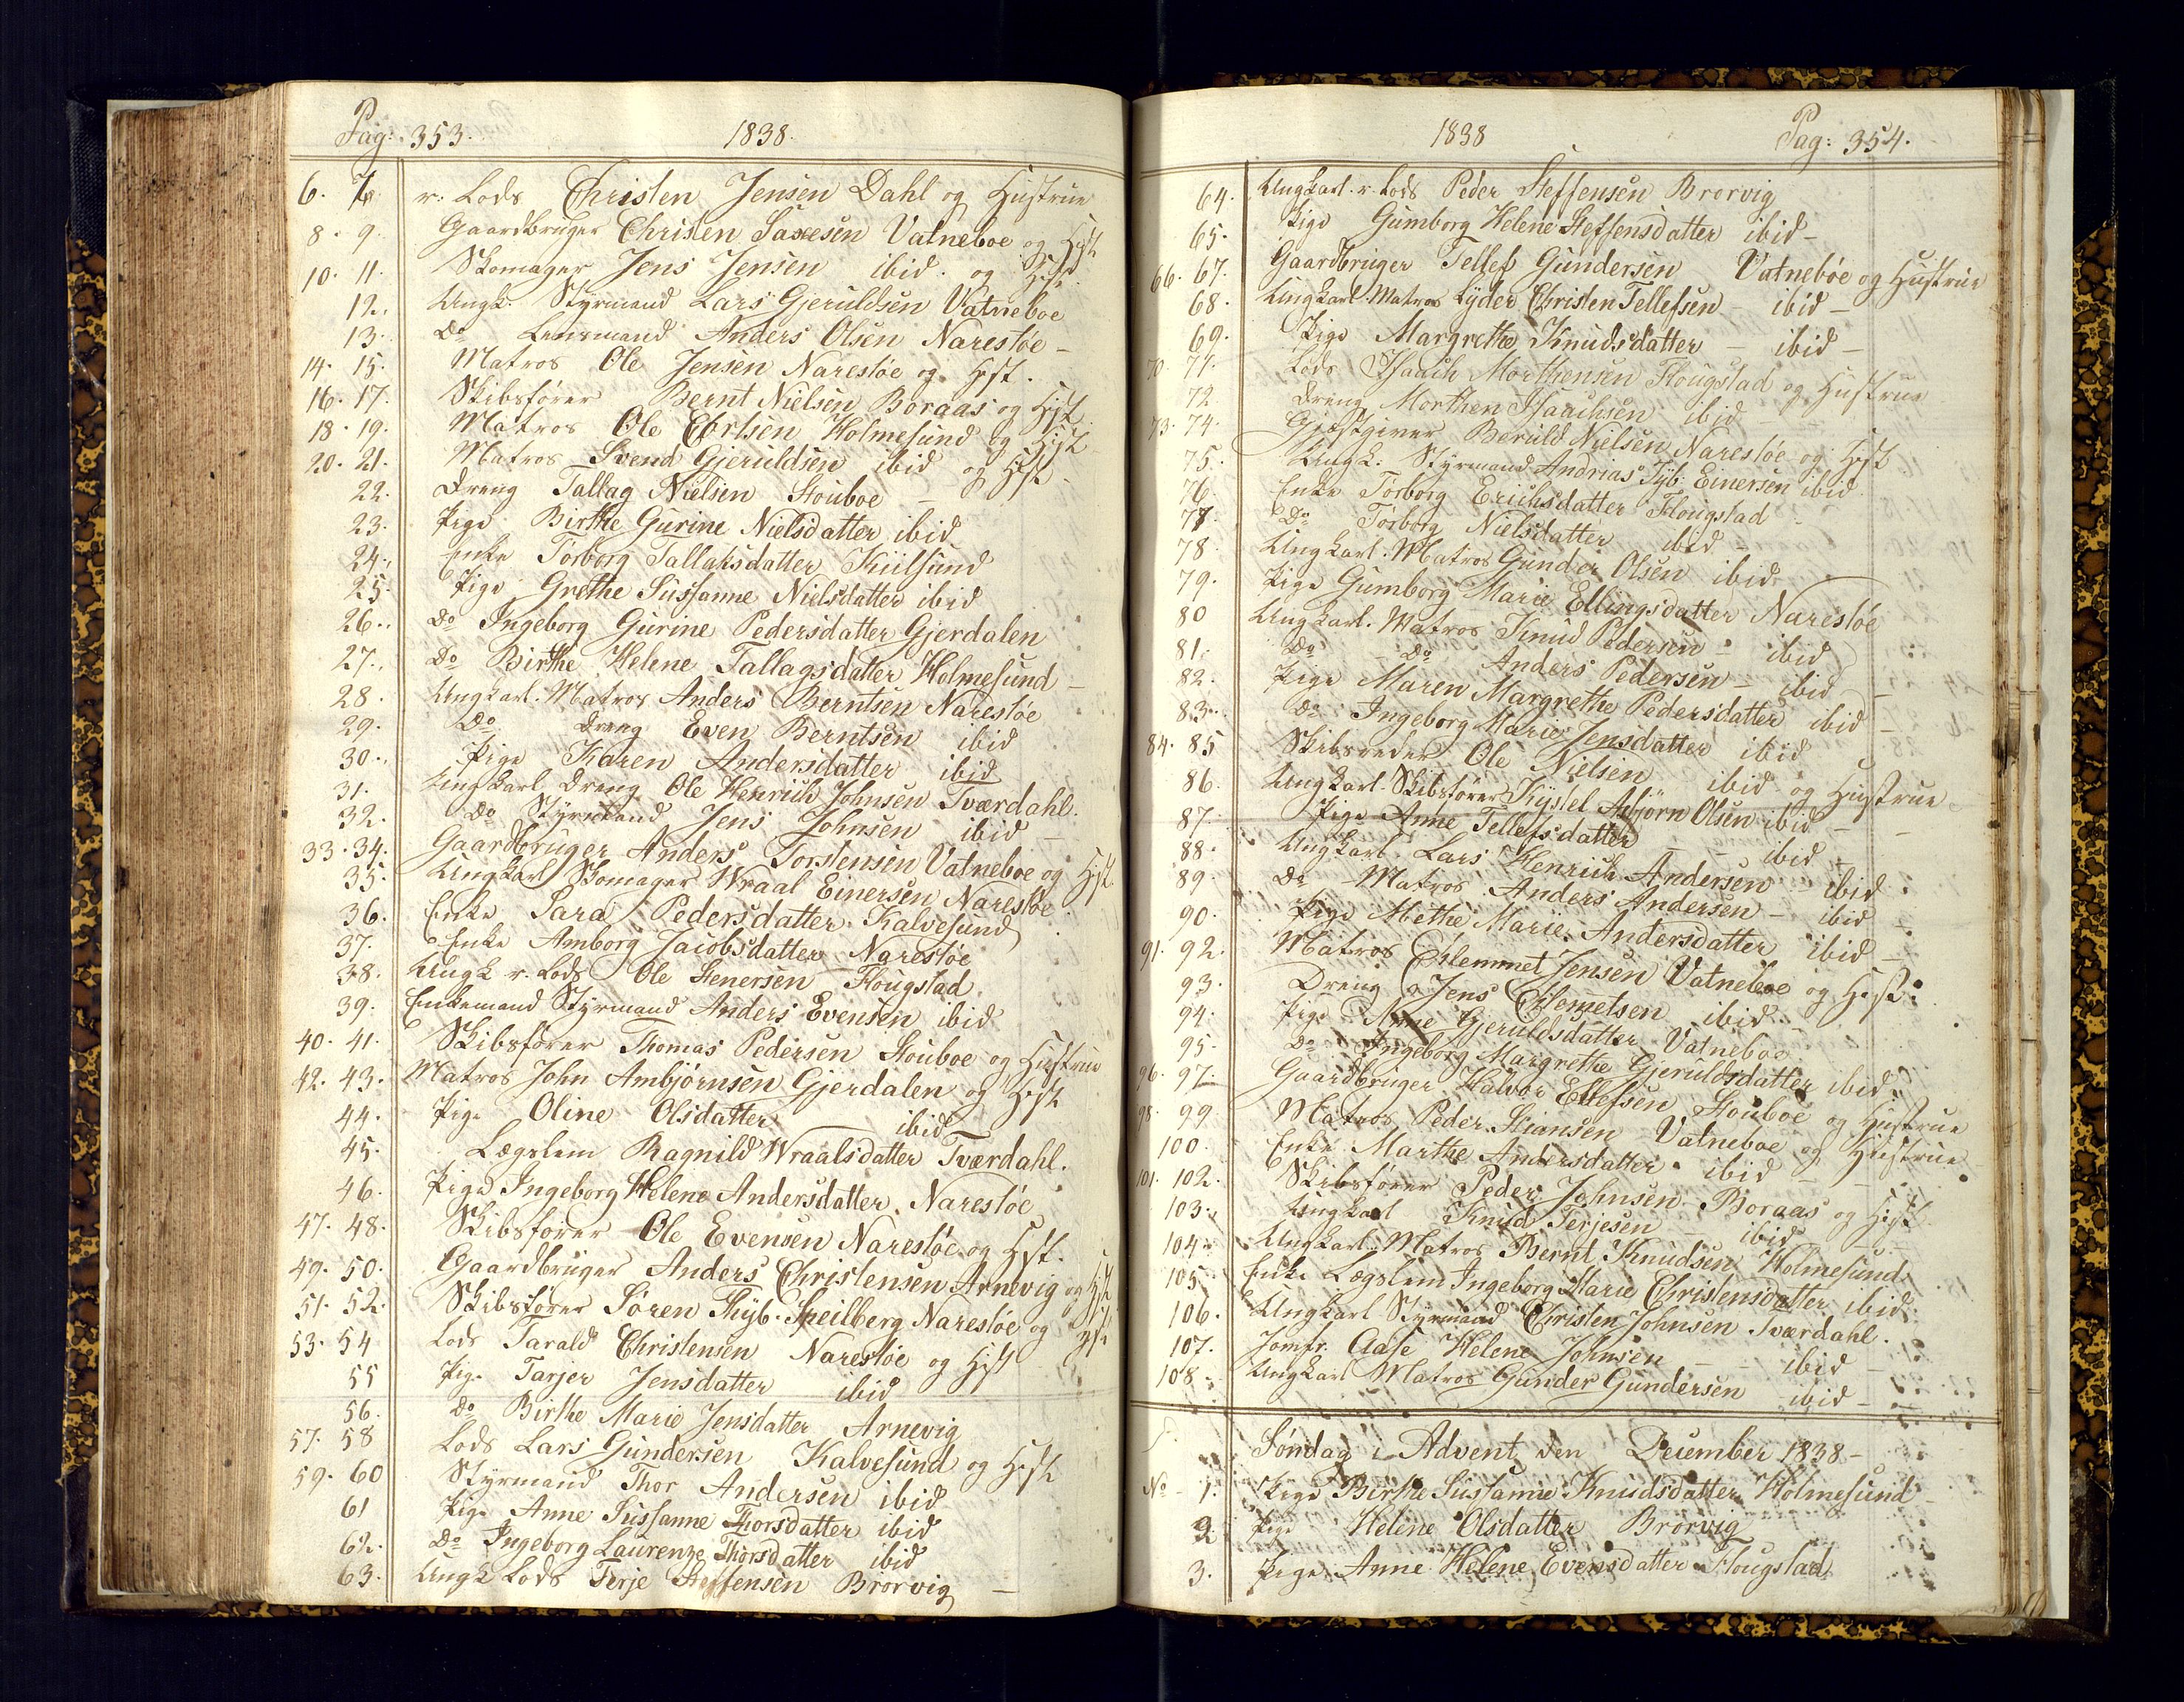 Pag: 353. 1838.
6. 7. r. Lods Christen Jensen Dahl og Hustrue
8. 9. Gaardbruger Christen Saxesen Vatneboe og Hst
10. 11. Skomager Jens Jensen ibid. og Hst
12. Ungk. Styrmand Lars Gjeruldsen Vatneboe
13. Do Lensmand Anders Olsen Narestøe –
14. 15. Matros Ole Jensen Narestøe og Hst.
16. 17. Skibsfører Bernt Nielsen Boraas og Hst
18. 19. Matros Ole Holmesund og Hst
20. 21. Matros Svend Gjeruldsen ibid og Hst –
22. Dreng Tallag Nielsen Stouboe –
23. Pige Birthe Gurine Nielsdatter ibid
24. Enke Torborg Tallaksdatter Kiilsund
25. Pige Grethe Sussanne Nielsdatter ibid
26. Do Ingeborg Gurine Pedersdatter Gjerdalen
27. Do Birthe Helene Tallagsdatter Holmesund –
28. Ungkarl. Matros Anders Berntsen Narestøe
29. Do Dreng Even Berntsen ibid
30. Pige Karen Andersdatter ibid
31. Ungkarl Dreng Ole Henrich Johnsen Tværdahl.
32. Do Styrmand Jens Johnsen ibid –
33. 34. Gaardbruger Anders Torstensen Vatneboe og Hst.
35. Ungkarl Skomager Wraal Einersen Narestøe
36. Enke Sara Pedersdatter Kalvesund
37. Enke Amborg Jacobsdatter Narestøe
38. Ungk r. Lods Ole Stenersen Flougstad
39. Enkemand Styrmand Anders Evensen ibid
40. 41. Skibsfører Thomas Pedersen Stouboe og Hustrue
42. 43. Matros John Ambjørnsen Gjerdalen og Hst
44. Pige Oline Olsdatter ibid
45. Lægslem Ragnild Wraalsdatter Tværdahl.
46. Pige Ingeborg Helene Andersdatter Narestøe
47. 48. Skibsfører Ole Evensen Narestøe og Hst.
49. 50. Gaardbruger Anders Christensen Arnevig og Hst
51. 52. Skibsfører Søren Thyb. Speilberg Narestøe og Hst
53. 54 Lods Tarald Christensen Narestøe og Hst
55 Pige Tarjer Jensdatter ibid
56. Do Birthe Marie Jensdatter Arnevig
57. 58 Lods Lars Gundersen Kalvesund og Hst
59. 60 Styrmand Thor Andersen ibid
61 Pige Anne Sussanne Thorsdatter ibid
62. Do Ingeborg Laurenze Thorsdatter ibid
63. Ungk Lods Terje Steffensen Brorvig –
1838 Pag: 354.
64. Ungkarl. r. Lods Peder Steffensen Brorvig
65. Pige Gumborg Helene Steffensdatter ibid –
66. 67. Gaardbruger Tellef Gundersen Vatnebøe og Hustrue
68. Ungkarl. Matros Lyder Christen Tellefsen ibid –
69. Pige Margrethe Knudsdatter – ibid –
70. 71. Lods Isaach Morthensen Flougstad og Hustrue
72 Dreng Morthen Isaachsen ibid
73. 74. Gjestgiver Beruld Nielsen Narestøe og Hst
75. Ungk. Styrmand Andrias Tyb. Einersen ibid
76. Enke Torborg Erichsdatter Flougstad
77. Do Torborg Nielsdatter ibid –
78. Ungkarl. Matros Gunder Olsen ibid
79. Pige Gumborg Marie Ellingsdatter Narestøe
80 Ungkarl. Matros Knud Pedersen – ibid
81. Do Do Anders Pedersen – ibid
82. Pige Maren Margrethe Pedersdatter ibid –
83. Do Ingeborg Marie Jensdatter ibid
84. 85 Skibsreder Ole Nielsen ibid og Hustrue
86. Ungkarl. Skibsfører Kystel Asbjorn Olsen ibid –
87. Pige Anne Tellefsdatter – – ibid –
88. Ungkarl. Lars Henrich Andersen – ibid
89. Do Matros Anders Andersen – ibid
90. Pige Methe Marie Andersdatter ibid –
91. 92. Matros Clemmet Jensen Vatneboe og Hst.
93. Dreng Jens Clemetsen ibid –
94. Pige Anne Gjeruldsdatter Vatneboe
95. Do Ingeborg Margrethe Gjeruldsdatter ibid
96. 97. Gaardbruger Halvor Ellefsen Stouboe og Hustrue
98. 99. Matros Peder Vatneboe og Hustrue
100. Enke Marthe Andersdatter ibid –
101. 102. Skibsfører Peder Johnsen Boraas og Hst
103. Ungkarl Knud Terjesen – ibid –
104. Ungkarl. Matros Bernt Knudsen Holmesund
105. Enke Lægslem Ingeborg Marie Christensdatter ibid
106. Ungkarl Styrmand Christen Johnsen Tværdahl.
107. Jomfr. Aase Helene Johnsen – ibid
108. Ungkarl Matros Gunder Gundersen ibid –
Søndag i Advent den December 1838 –
No 1. Pige Birthe Sussanne Knudsdatter Holmesund
2. Pige Helene Olsdatter Brorvig
3. Pige Anne Helene Evensdatter Flougstad